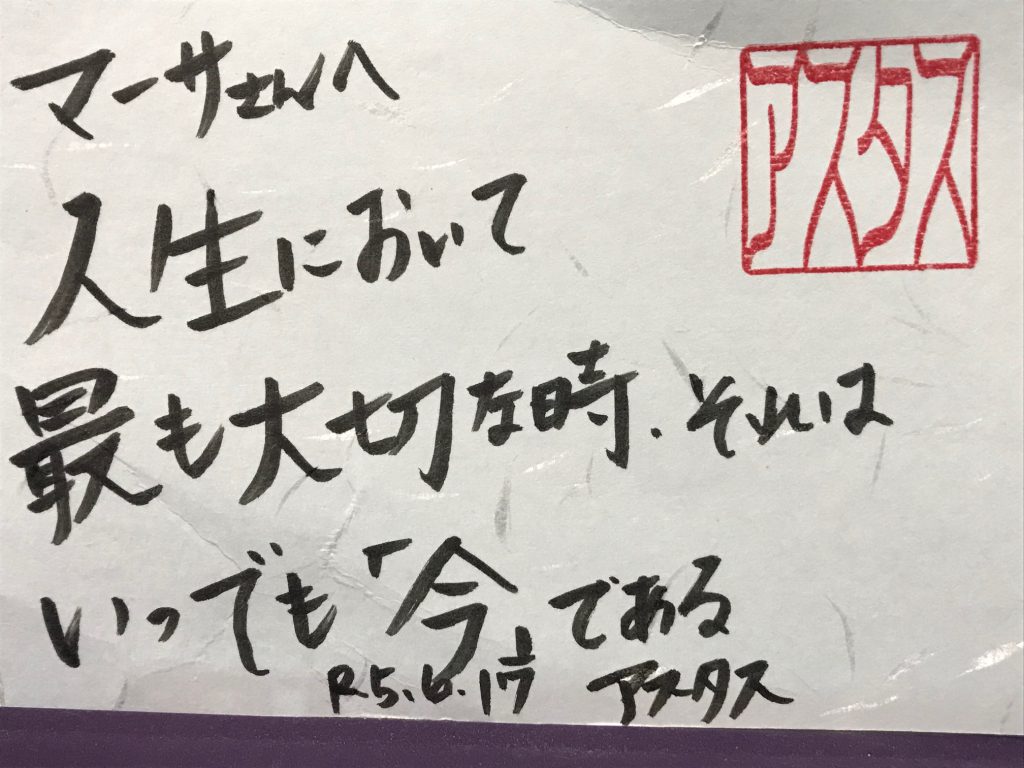 マーサさんへ
アスタス
人生において
最も大切な時、それは
いつでも「今」である
R5.6.17 アスタス